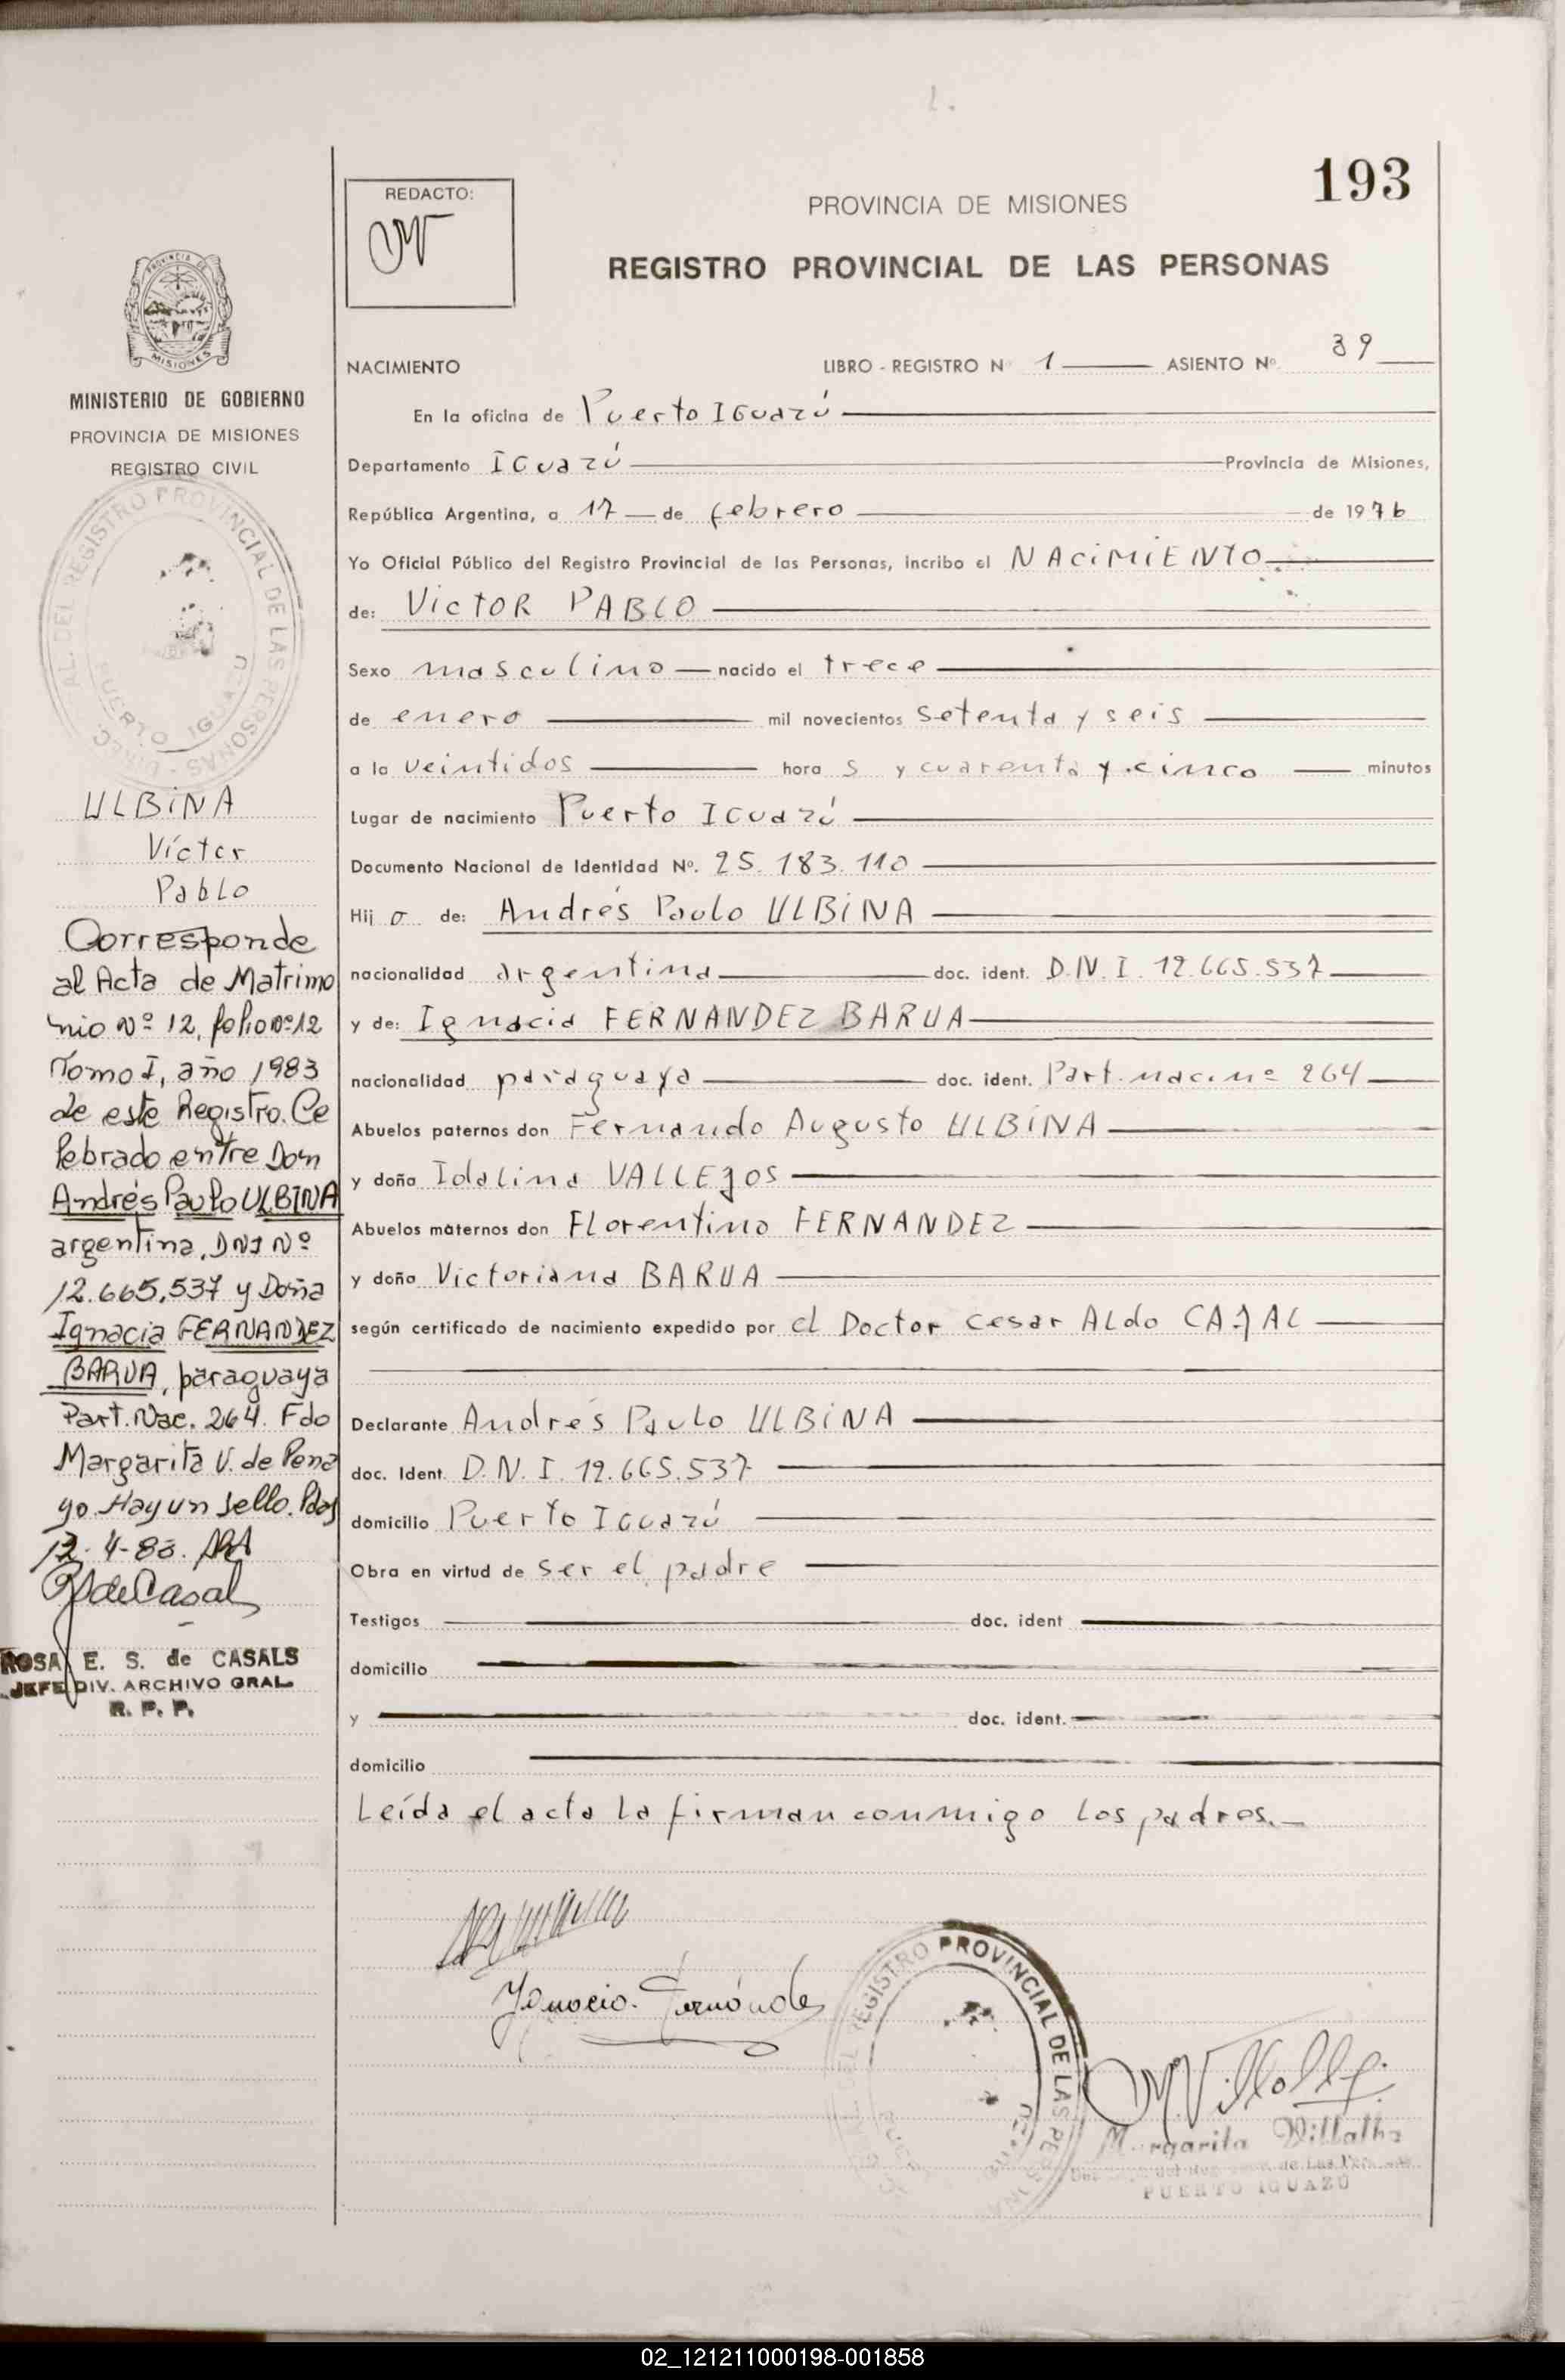 193
REDACTO:
PROVINCIA DE MISIONES
REGISTRO PROVINCIAL DE LAS PERSONAS
NACIMIENTO LIBRO - REGISTRO Nº 1 ASIENTO Nº 39
En la oficina de Puerto IGuazú
Departamento IGuazú Provincia de Misiones,
República Argentina, a 17 de febrero de 1976
Yo Oficial Público del Registro Provincial de las Personas, incribo el NACiMiENTO
de: VictOR PABLO
Sexo masculino nacido el trece
de enero mil novecientos setenta y seis
a la veintidos hora s y cuarenta y cinco minutos
Lugar de nacimiento Puerto IGuazú
Documento Nacional de Identidad Nº. 25.183.110
Hij o de: Andrés Paulo ULBiNA
nacionalidad argentina doc. ident. D.N.I. 12.665.537
y de: Ignacia FERNANDEZ BARUA
nacionalidad paraguaya doc. ident. Part. nac. nº 264
Abuelos paternos don Fernando Augusto ULBiNA
y doña Idalina VALLEJOS
Abuelos maternos don Florentino FERNANDEZ
y doña Victoriana BARUA
según certificado de nacimiento expedido por el Doctor Cesar Aldo CAJAL
Declarante Andrés Paulo ULBiNA
doc. Ident. D.N.I. 12.665.537
domicilio Puerto IGuazú
Obra en virtud de ser el padre
Testigos doc. ident
domicilio
y doc. ident.
domicilio
Leída el acta la firman conmigo los padres.
Ignacia Fernández
REGISTRO PROVINCIAL DE LAS PE
Margarita Villalba
PUERTO IGUAZÚ
MISIONES
MINISTERIO DE GOBIERNO
PROVINCIA DE MISIONES
REGISTRO CIVIL
DEL REGISTRO PROVINCIAL DE LAS PERSONAS
PUERTO IGUAZU
ULBiNA
Víctor
Pablo
Corresponde
al Acta de Matrimo
nio Nº 12, folio nº 12
Tomo I, año 1983
de este Registro. Ce
lebrado entre Don
Andrés Paulo ULBINA
argentina, DNI Nº
12.665.537 y Doña
Ignacia FERNANDEZ
BARUA, paraguaya
Part. Nac. 264. Fdo
Margarita V. de Pena
yo. Hay un sello. Pdas
12-4-83.
RSdeCasals
ROSA E. S. de CASALS
JEFE DIV. ARCHIVO GRAL.
R. P. P.
02_121211000198-001858